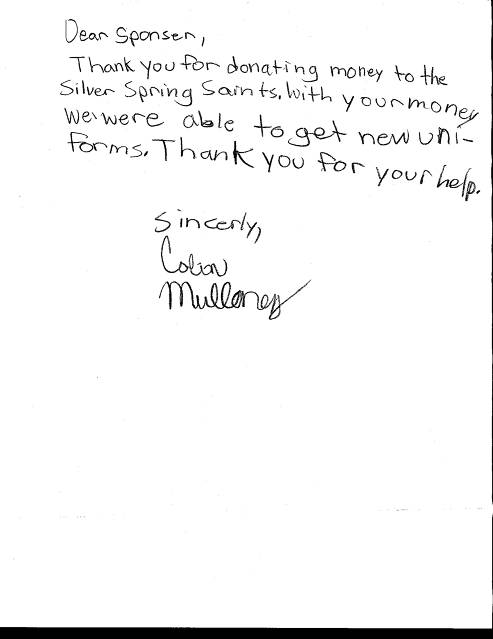 Dear Sponser,
Thank you for donating money to the
Silver Spring Saints. With your money
we were able to get new uni-
forms. Thank you for your help.
Sincerly,
Colin
Mulloney